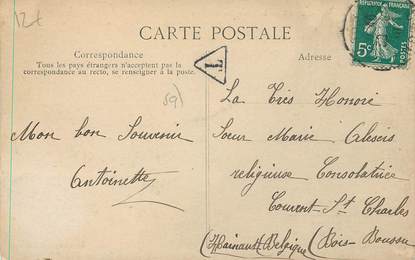 12f
CARTE POSTALE
Correspondance
Tous les pays étrangers n'acceptent pas la
correspondance au recto, se renseigner à la poste.
Adresse
T
RÉPUBLIQUE FRANÇAISE
5c
59
Mon bon Souvenir
Antoinette
La Très Honoré
Sœur Marie Alexis
religieuse Consolatrice
Couvent St Charles
(Hainaut Belgique) (Bois-Boussu